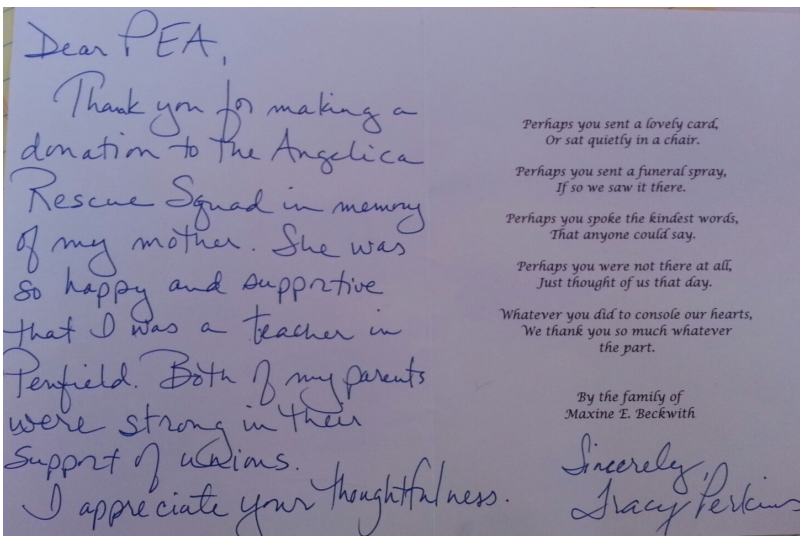 Dear PEA,
Thank you for making a
donation to the Angelica
Rescue Squad in memory
of my mother. She was
so happy and supportive
that I was a teacher in
Penfield. Both of my parents
were strong in their
support of unions.
I appreciate your thoughtfulness.
Perhaps you sent a lovely card,
Or sat quietly in a chair.
Perhaps you sent a funeral spray,
If so we saw it there.
Perhaps you spoke the kindest words,
That anyone could say.
Perhaps you were not there at all,
Just thought of us that day.
Whatever you did to console our hearts,
We thank you so much whatever
the part.
By the family of
Maxine E. Beckwith
Sincerely,
Tracy Perkins